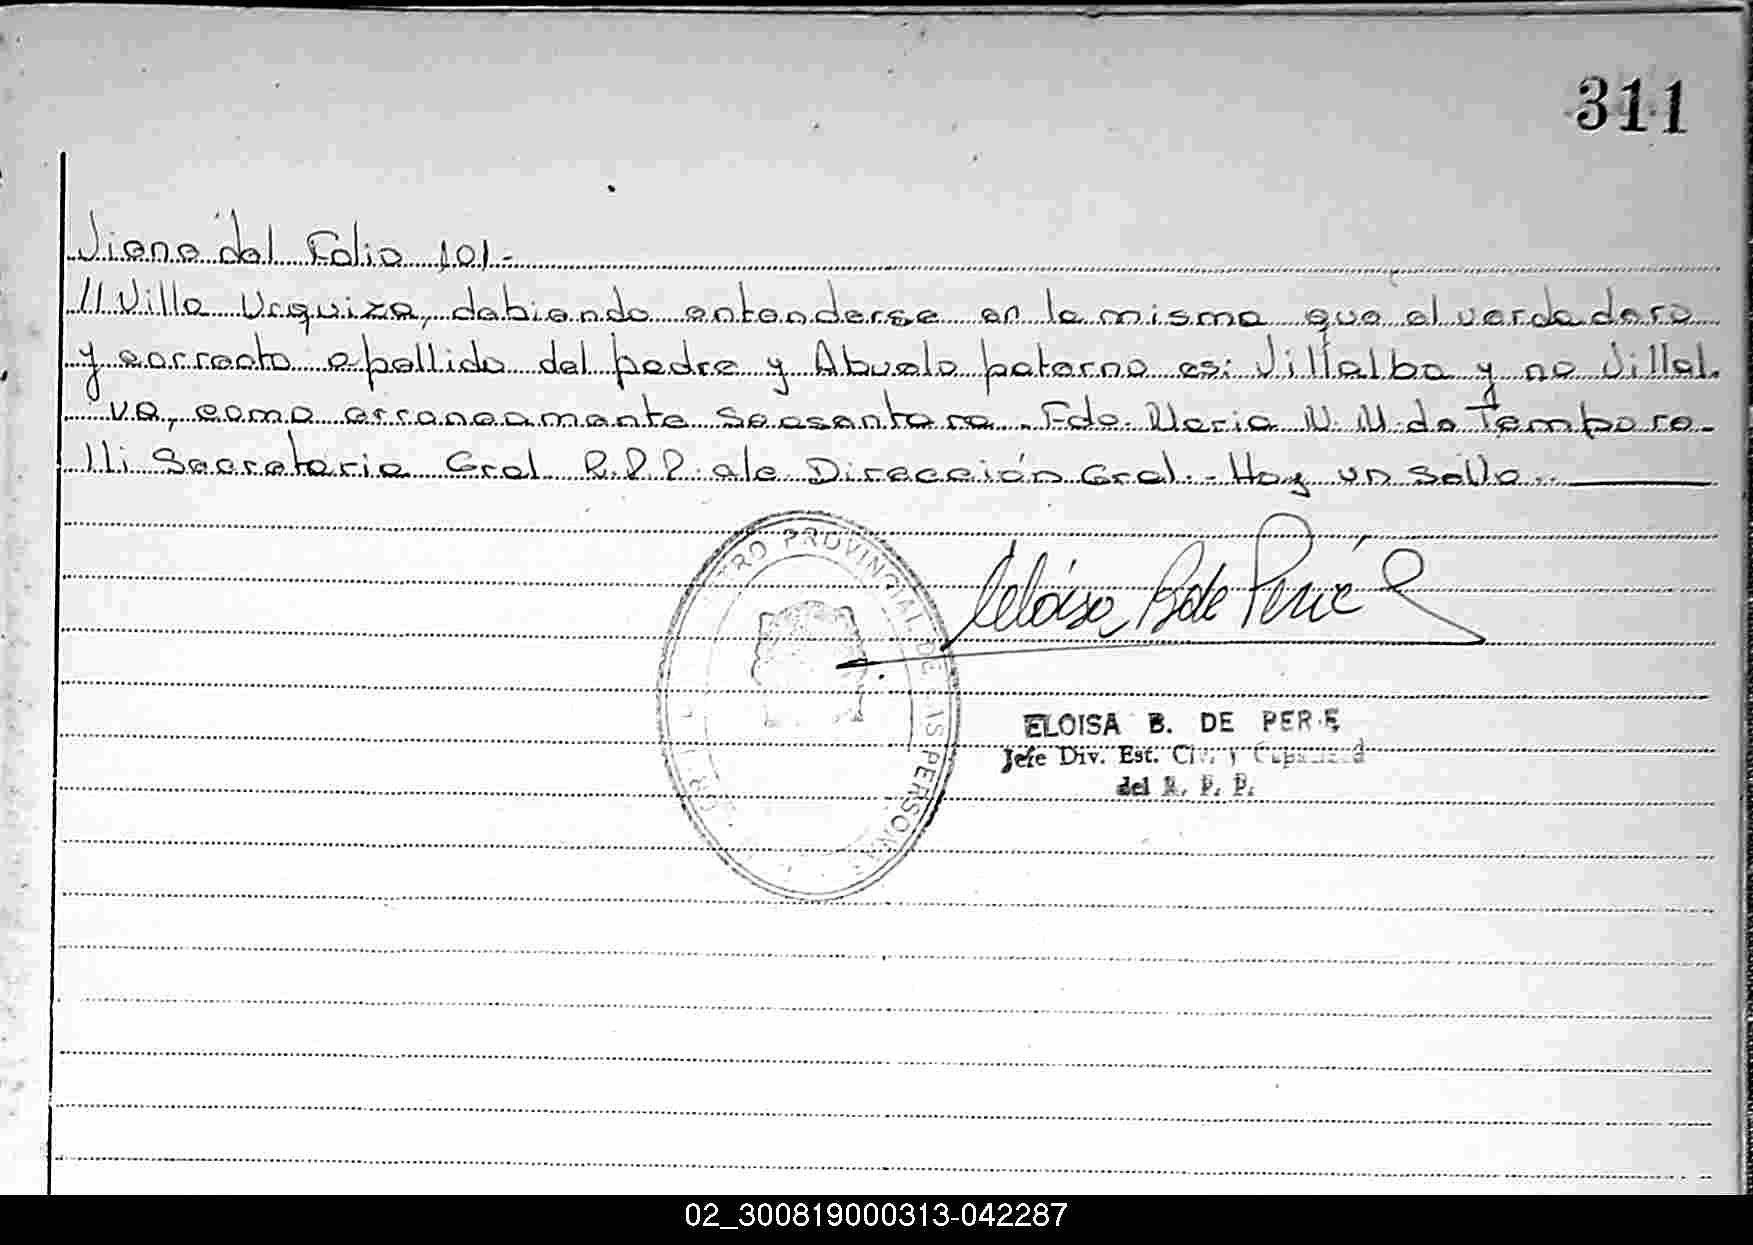 311
Viene del Folio 101.-
//Villa Urquiza, debiendo entenderse en la misma que el verdadero
y correcto apellido del padre y Abuelo paterno es: Villalba y no Villal-
va, como erroneamente se asentara. Fdo. Maria N. M. de Tempore-
lli Secretaria Gral R.P.P. a/c Dirección Gral.- Hay un sello.-
TRO PROVINCIAL DE LAS PERSONAS
Eloisa B de Peré
ELOISA B. DE PERE
Jefe Div. Est. Civ. y Capacidad
del R. P. P.
02_300819000313-042287